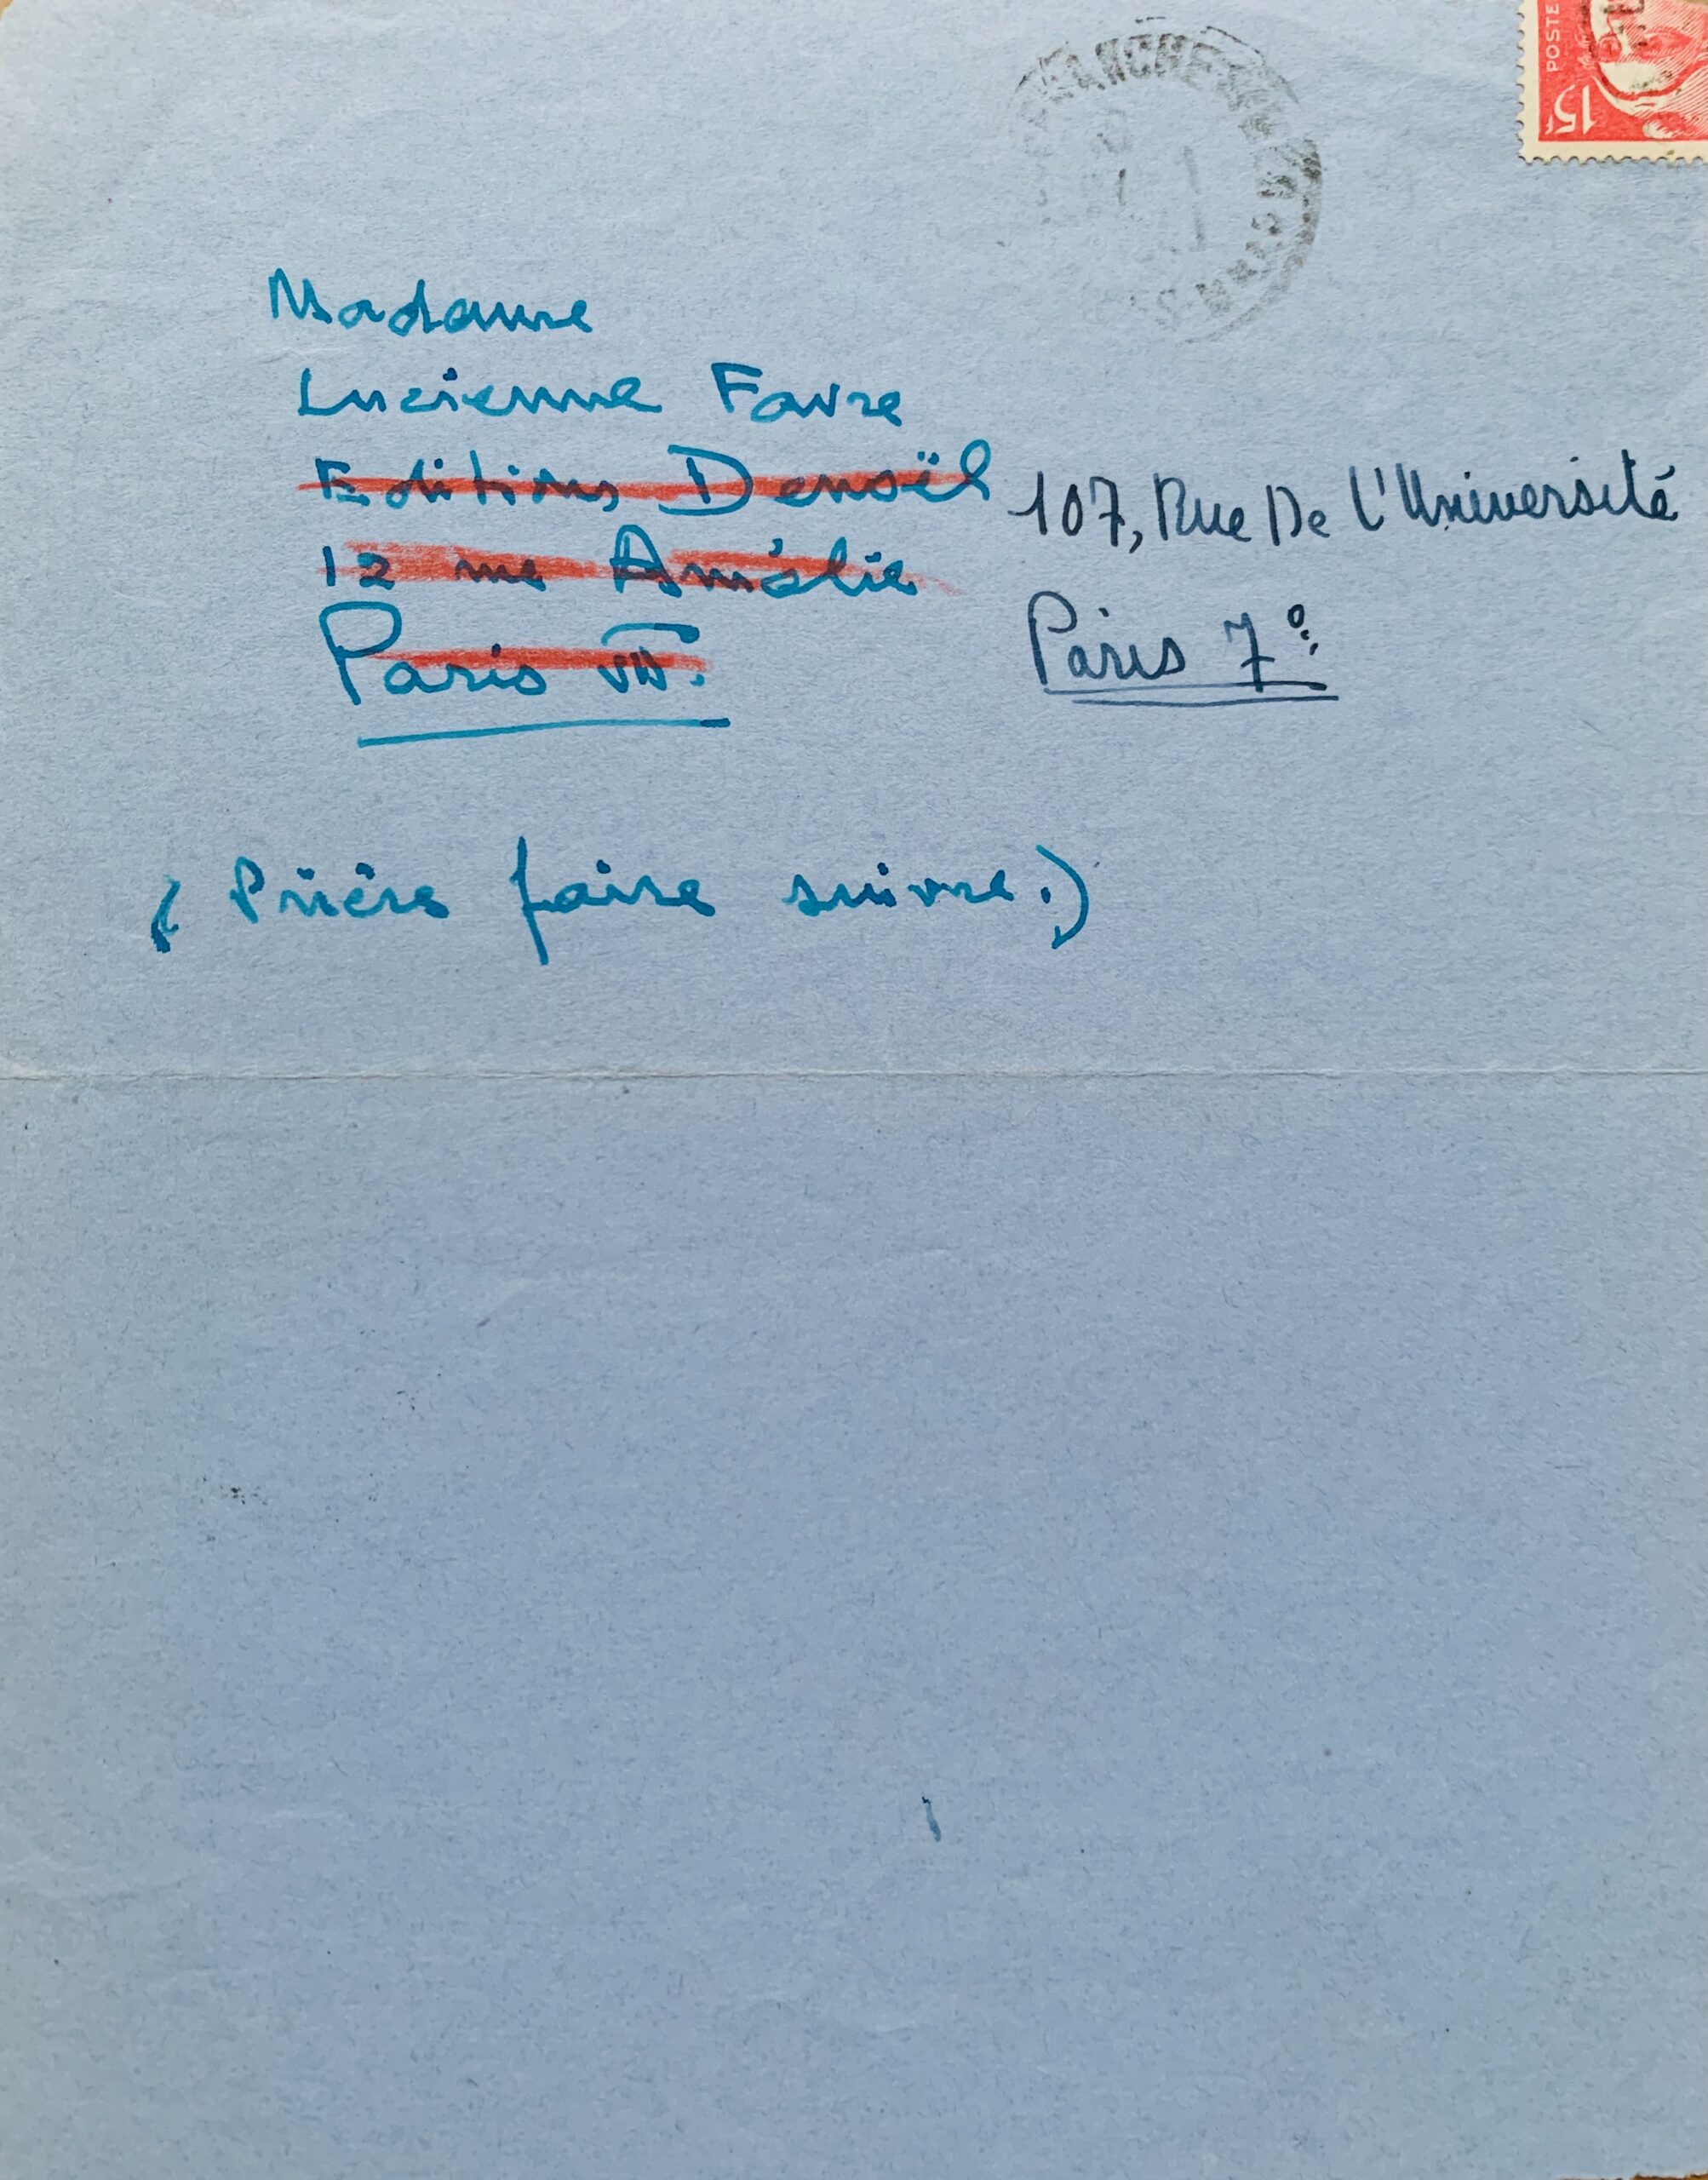 POSTE
15F
Madame
Lucienne Favre
Editions Denoël
12 rue Amélie
Paris VII.
107, Rue De L'Université
Paris 7º.
(Prière faire suivre.)